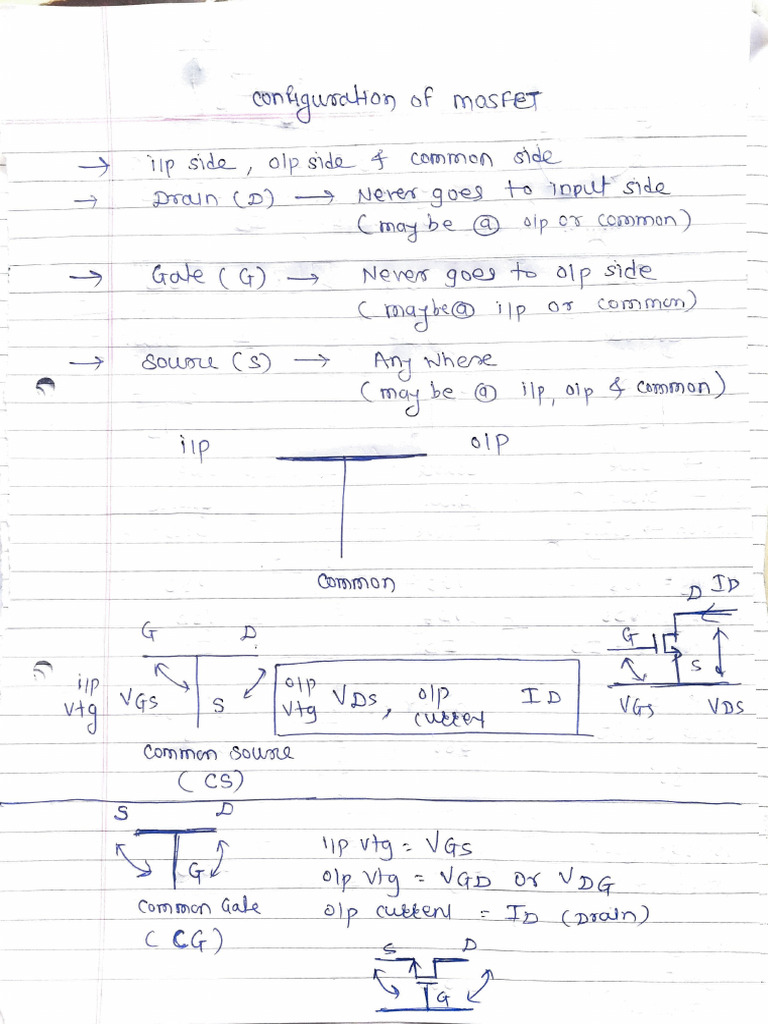 Configuration of MOSFET
→ i/p side, o/p side & common side
→ Drain (D) → Never goes to input side
(may be @ o/p or common)
→ Gate (G) → Never goes to o/p side
(maybe @ i/p or common)
→ Source (S) → Any where
(may be @ i/p, o/p & common)
i/p o/p
common
D ID
G D
G
S
i/p
vtg VGS S
o/p
vtg VDS, o/p
current ID
VGS VDS
common source
(CS)
S D
G
i/p vtg = VGS
o/p vtg = VGD or VDG
common Gate
o/p current = ID (Drain)
(CG)
S D
G